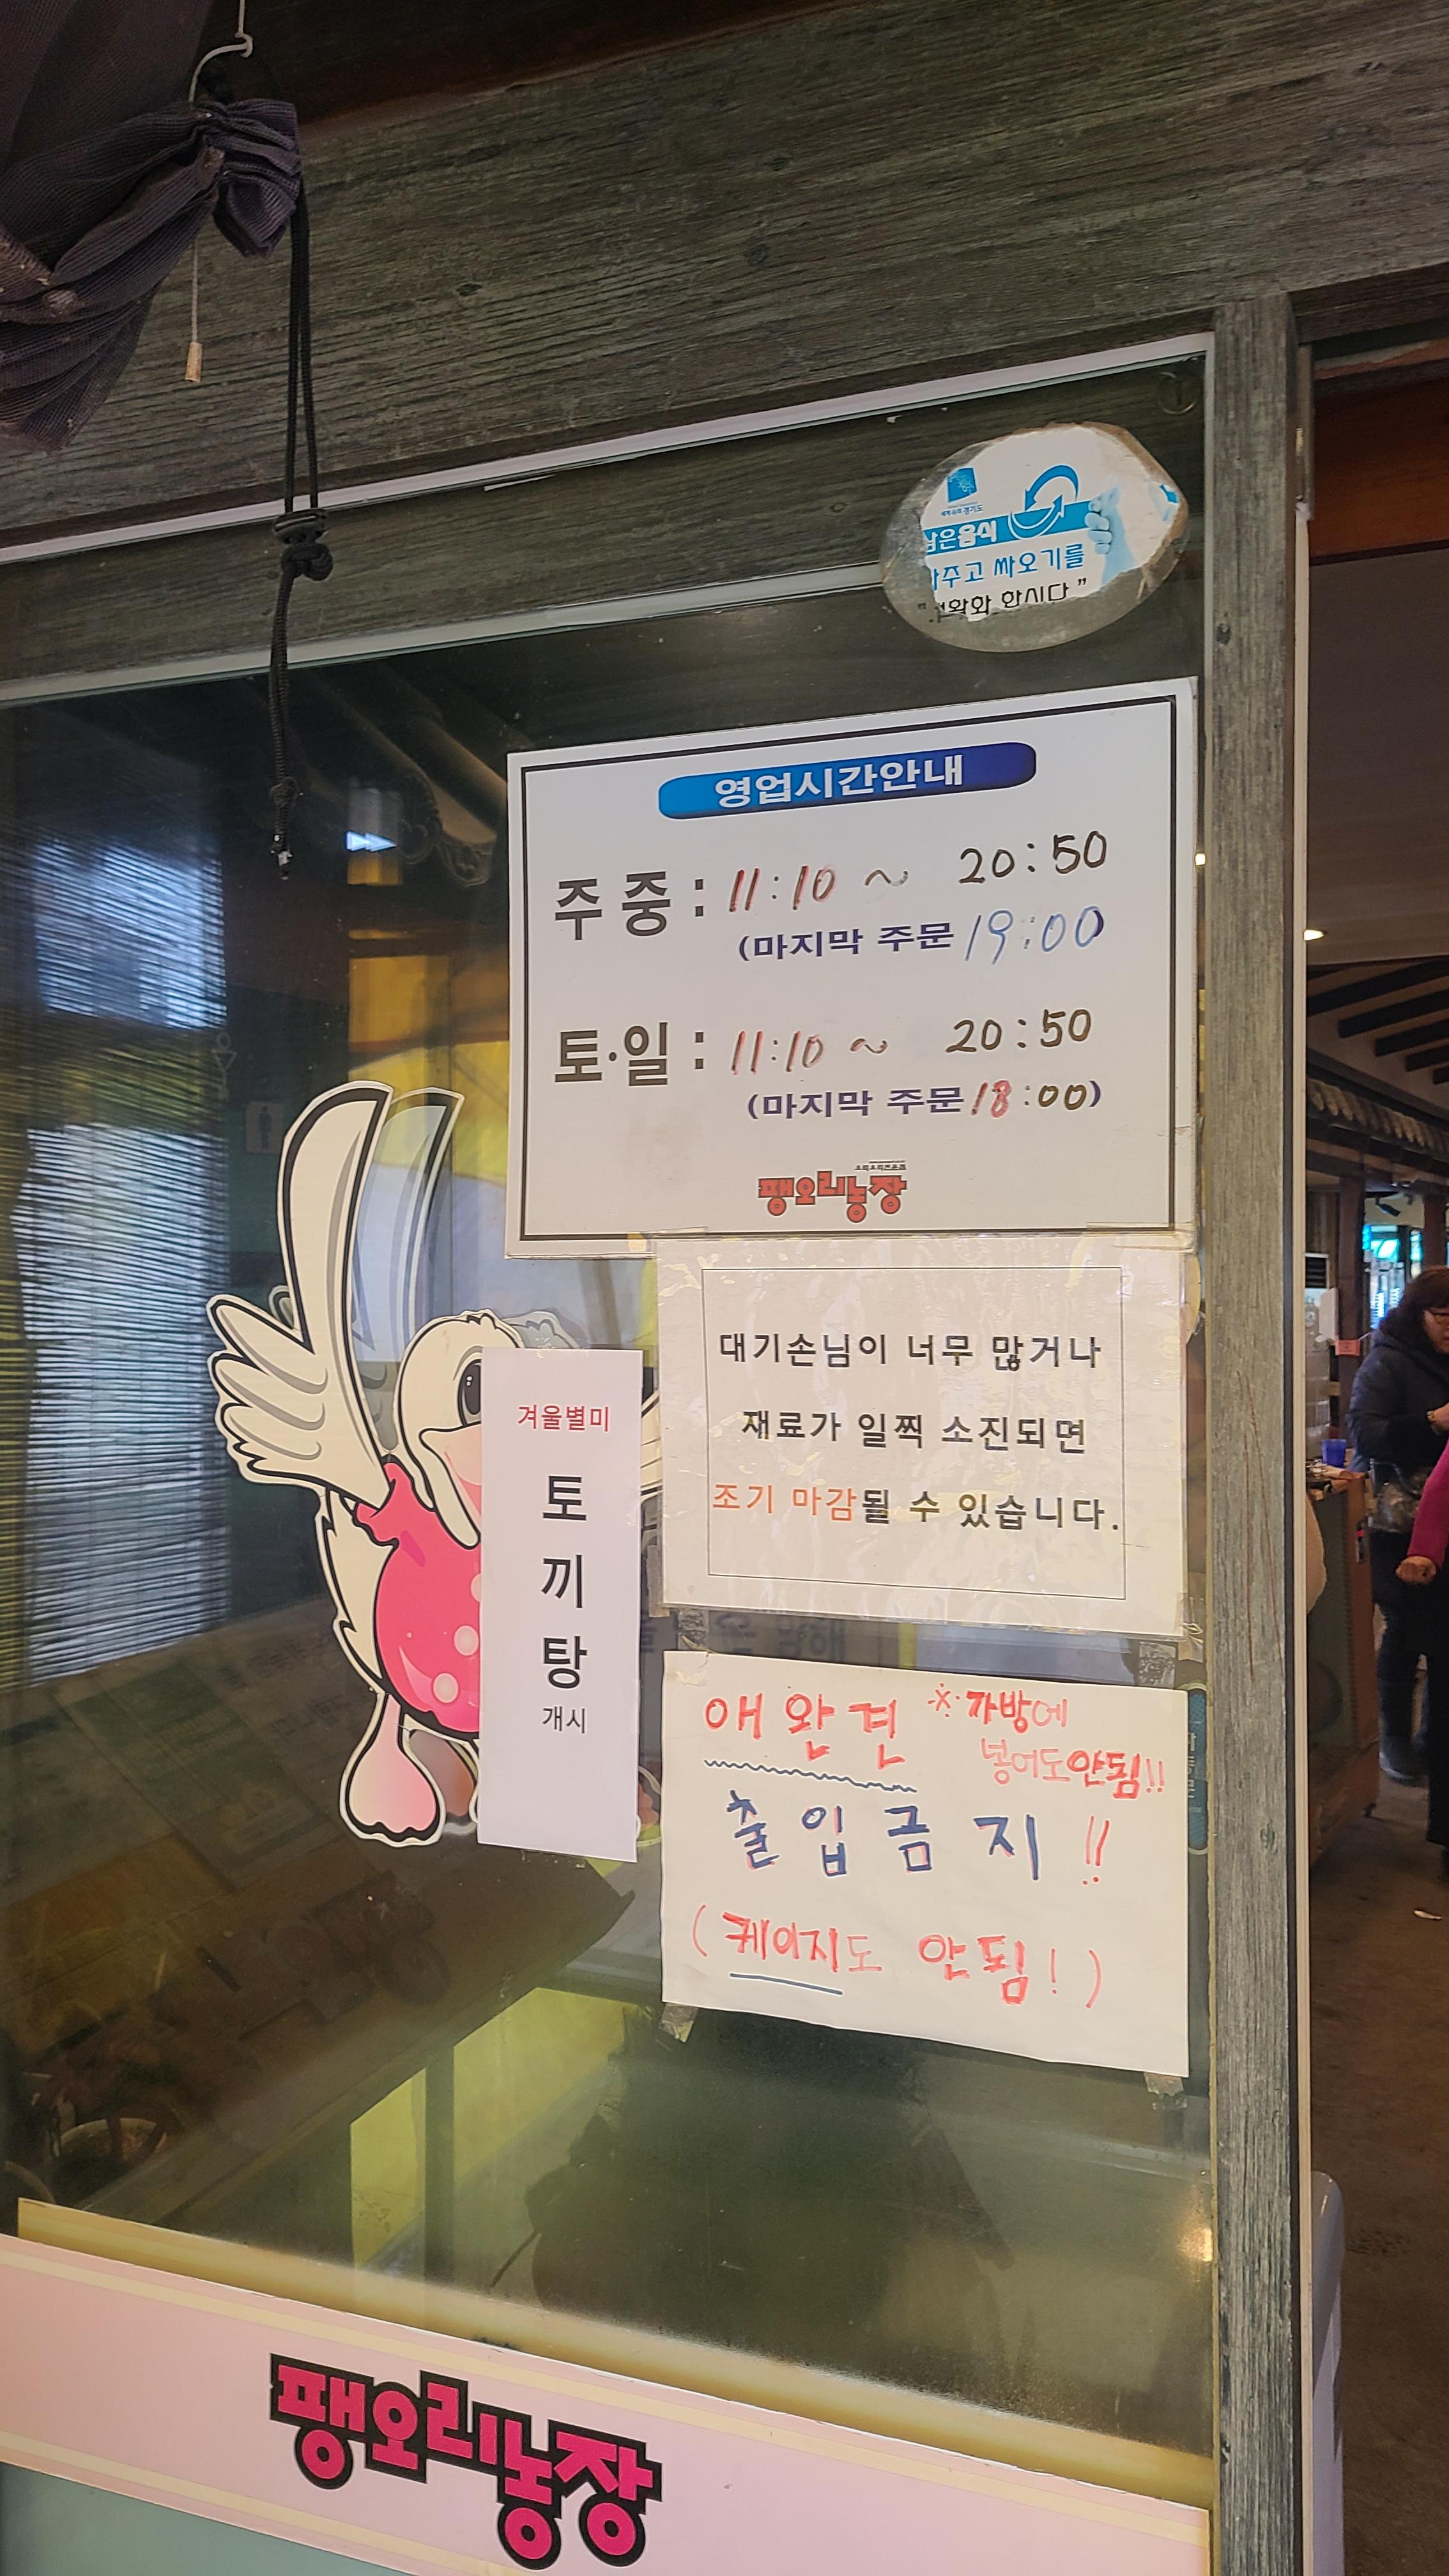 세계속의 경기도
남은음식
싸주고 싸오기를
한시다"
영업시간안내
주중 : 11:10 ~ 20:50
(마지막 주문 19:00)
토·일 : 11:10 ~ 20:50
(마지막 주문 18:00)
팽오리농장
대기손님이 너무 많거나
재료가 일찍 소진되면
조기 마감될 수 있습니다.
겨울별미
토
끼
탕
개시
애완견 ※가방에
넣어도안됨!!
출입금지!!
(케이지도 안됨!)
팽오리농장